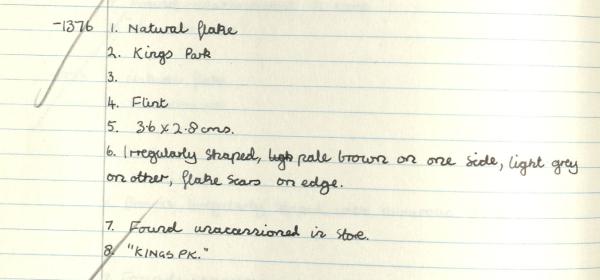 -1376 1. Natural flake
2. Kings Park
3.
4. Flint
5. 3.6 x 2.8 cms.
6. Irregularly shaped, pale brown on one side, light grey
on other, flake scars on edge.
7. Found unaccessioned in store.
8. "KINGS PK."